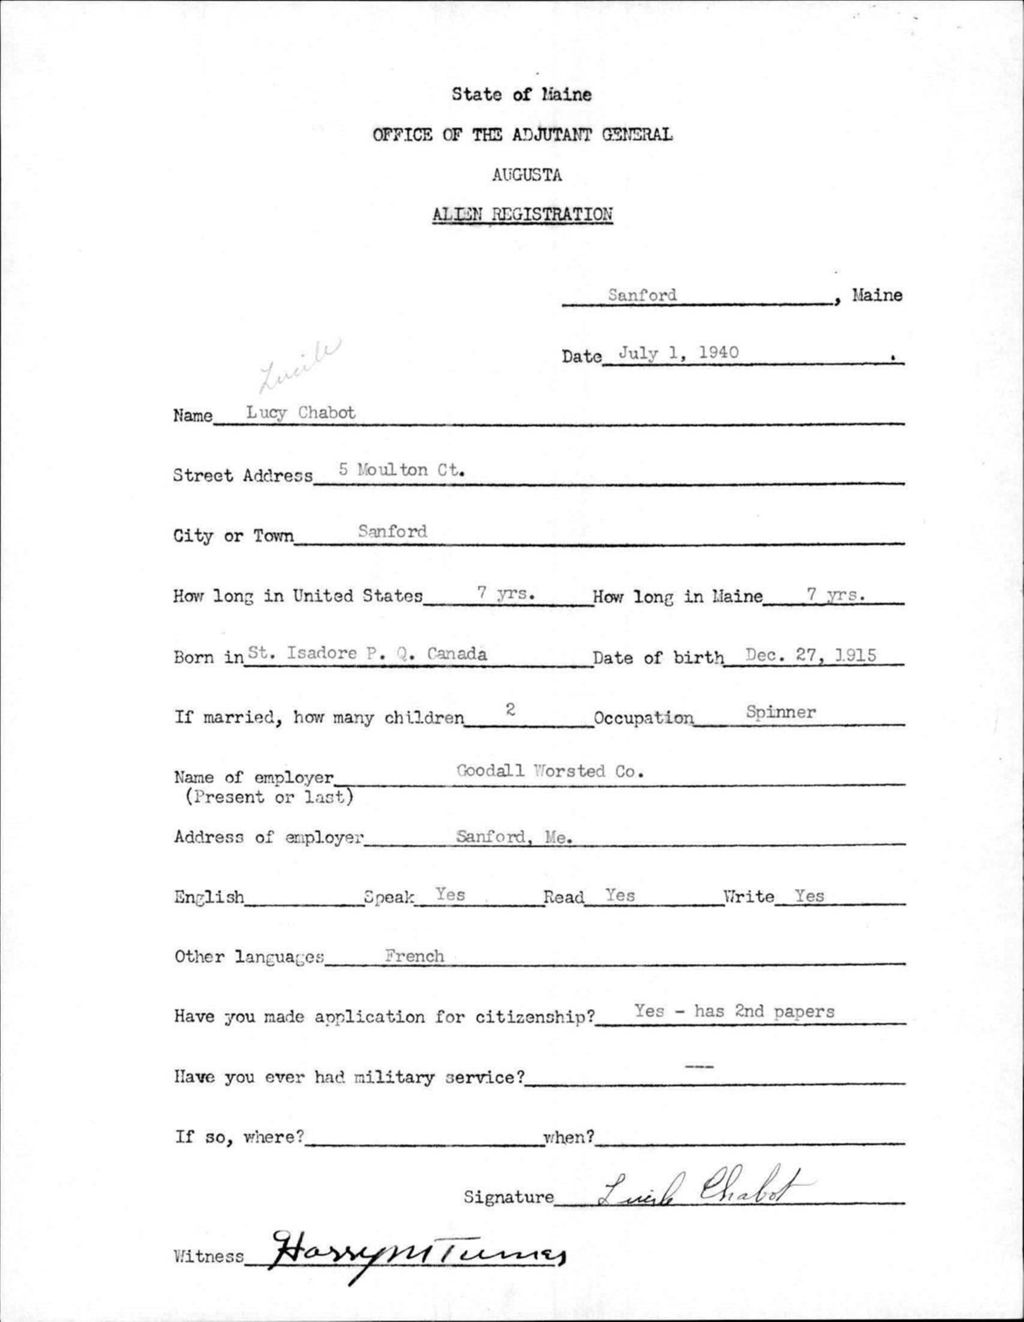 State of Maine
OFFICE OF THE ADJUTANT GENERAL
AUGUSTA
ALIEN REGISTRATION
Sanford, Maine
Date July 1, 1940.
Lucile
Name Lucy Chabot
Street Address 5 Moulton Ct.
City or Town Sanford
How long in United States 7 yrs. How long in Maine 7 yrs.
Born in St. Isadore P. Q. Canada Date of birth Dec. 27, 1915
If married, how many children 2 Occupation Spinner
Name of employer Goodall Worsted Co.
(Present or last)
Address of employer Sanford, Me.
English Speak Yes Read Yes Write Yes
Other languages French
Have you made application for citizenship? Yes - has 2nd papers
Have you ever had military service? ---
If so, where? when?
Signature Lucile Chabot
Witness Harry M